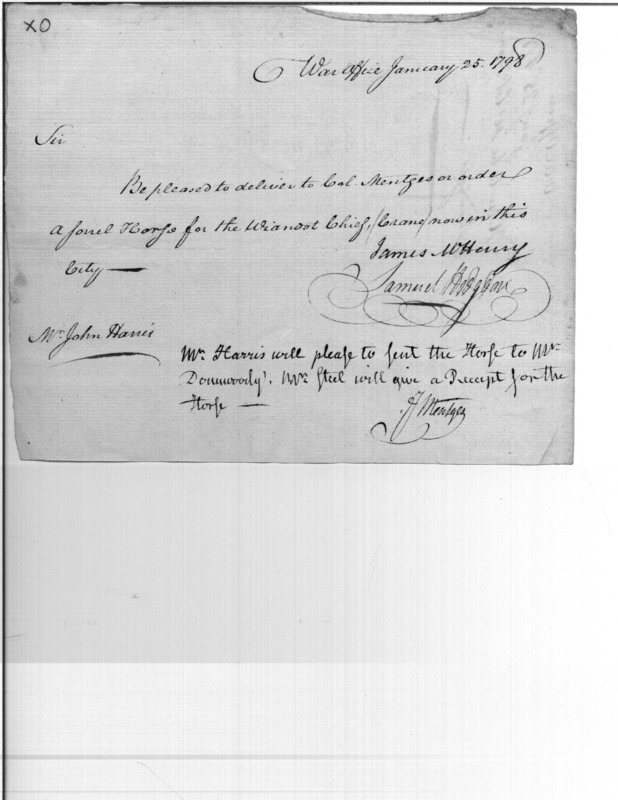 XO
War Office January 25. 1798
Sir
Be pleased to deliver to Col. Mentges or order
a sorel Horse for the Wiandot Chief, (Crane) now in this
City —
James McHenry
Samuel Hodgdon
Mr. John Harris
Mr. Harris will please to sent the Horse to Mr.
Dounwoody's, Mr. Steel will give a Receipt for the
Horse —
F Mentges